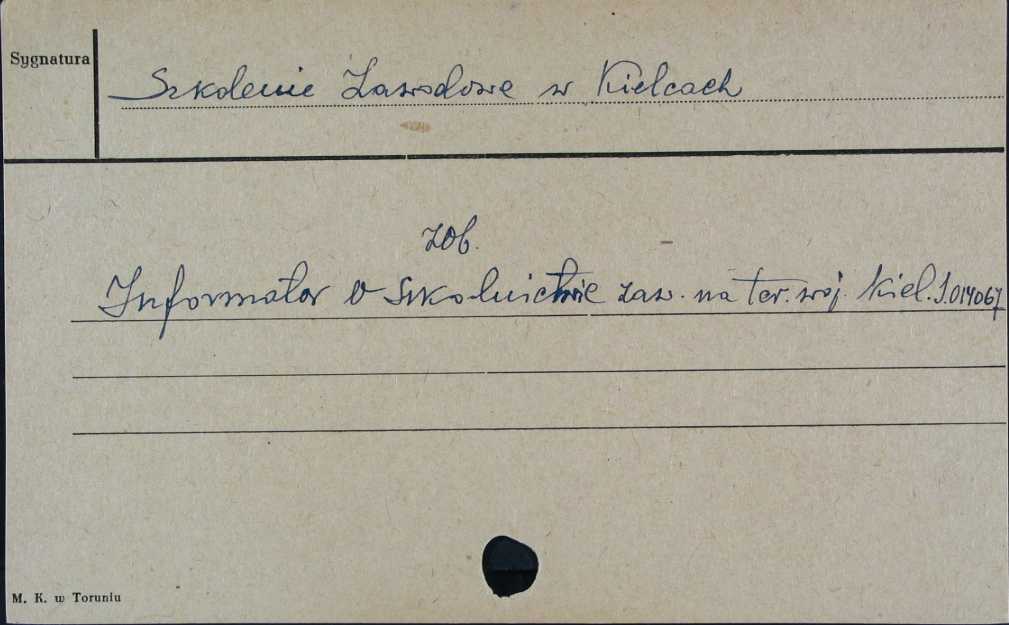 Sygnatura
Szkolenie Zawodowe w Kielcach
zob.
Informator o szkolnictwie zaw. na ter. woj. Kiel. S.014067
M. K. w Toruniu